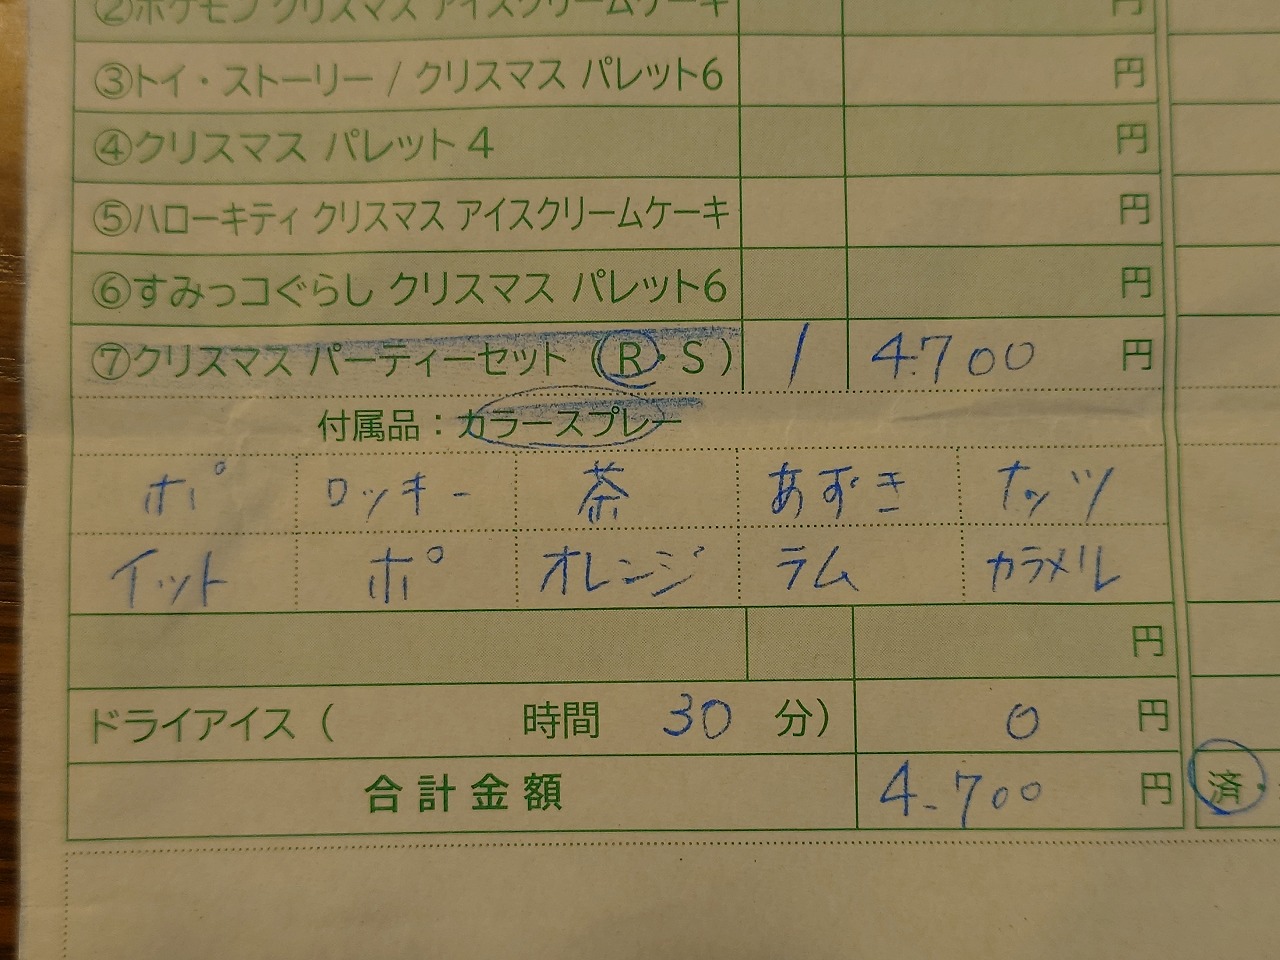 ②ポケモン クリスマス アイスクリームケーキ 円
③トイ・ストーリー / クリスマス パレット6 円
④クリスマス パレット 4 円
⑤ハローキティ クリスマス アイスクリームケーキ 円
⑥すみっコぐらし クリスマス パレット6 円
⑦クリスマス パーティーセット (R・S) 1 4.700 円
付属品：カラースプレー
ポ ロッキー 茶 あずき ナッツ
イット ポ オレンジ ラム カラメル
円
ドライアイス ( 時間 30 分) 0 円
合計金額 4.700 円 済・